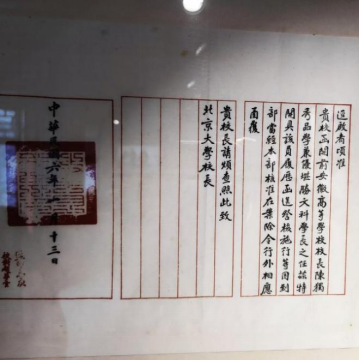 逕啟者頃准
貴校函開前安徽高等學校校長陳獨
秀品學兼優堪勝文科學長之任茲特
開具該員履歷函送祭核施行等因到
部當經本部核准在案除令行外相應
函復
貴校長請煩查照此致
北京大學校長
中華民國六年一月十三日